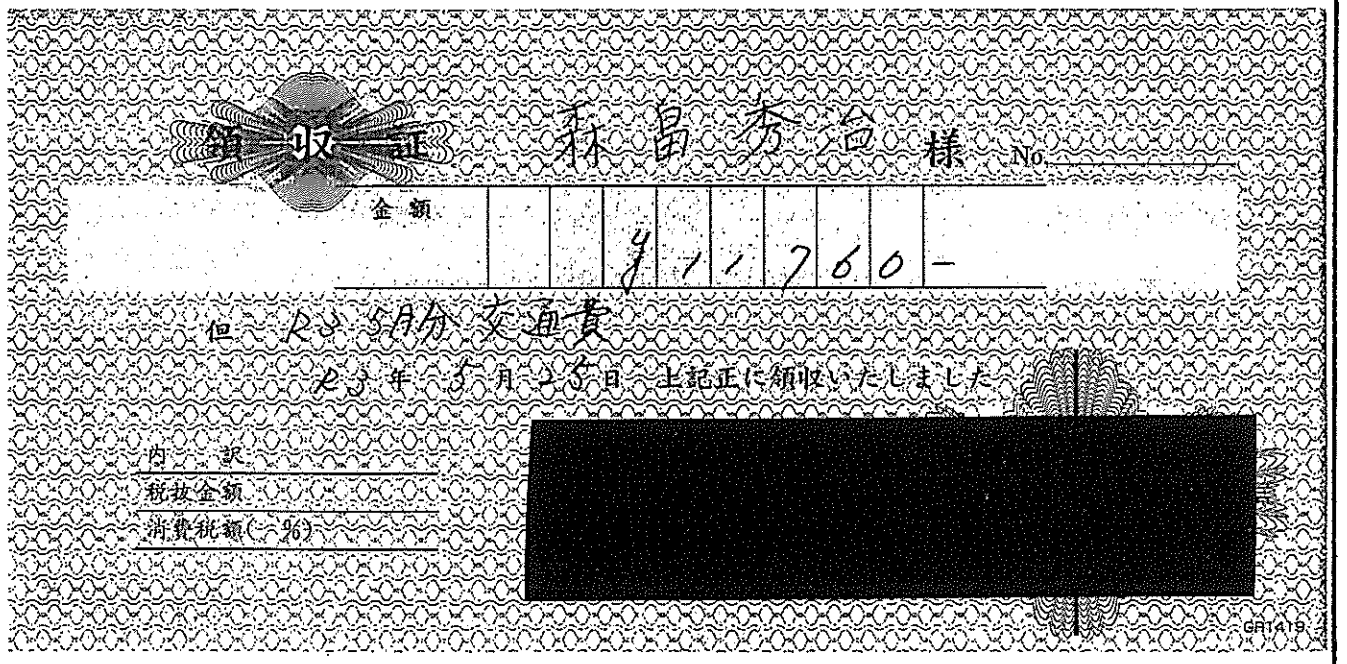 領収証 森畠秀治 様 No.
金額 ¥11760-
但 R3 5月分 交通費
R3年 5月25日 上記正に領収いたしました
内訳
税抜金額
消費税額( %)
GR1419